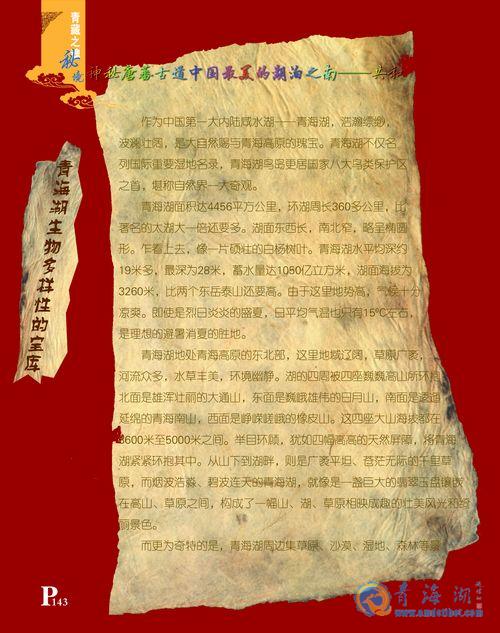 青藏之
秘境
神秘唐蕃古道中国最美的湖泊之南——共和
青海湖生物多样性的宝库
作为中国第一大内陆咸水湖——青海湖，浩瀚缥缈，
波澜壮阔，是大自然赐与青海高原的瑰宝。青海湖不仅名
列国际重要湿地名录，青海湖鸟岛更居国家八大鸟类保护区
之首，堪称自然界一大奇观。
青海湖面积达4456平方公里，环湖周长360多公里，比
著名的太湖大一倍还要多。湖面东西长，南北窄，略呈椭圆
形。乍看上去，像一片硕壮的白杨树叶。青海湖水平均深约
19米多，最深为28米，蓄水量达1050亿立方米，湖面海拔为
3260米，比两个东岳泰山还要高。由于这里地势高，气候十分
凉爽。即使是烈日炎炎的盛夏，日平均气温也只有15℃左右，
是理想的避暑消夏的胜地。
青海湖地处青海高原的东北部，这里地域辽阔，草原广袤，
河流众多，水草丰美，环境幽静。湖的四周被四座巍巍高山所环抱：
北面是雄浑壮丽的大通山，东面是巍峨雄伟的日月山，南面是逶迤
延绵的青海南山，西面是峥嵘嵯峨的橡皮山。这四座大山海拔都在
3600米至5000米之间。举目环顾，犹如四幅高高的天然屏障，将青海
湖紧紧环抱其中。从山下到湖畔，则是广袤平坦、苍茫无际的千里草
原，而烟波浩淼、碧波连天的青海湖，就像是一盏巨大的翡翠玉盘镶嵌
在高山、草原之间，构成了一幅山、湖、草原相映成趣的壮美风光和绮
丽景色。
而更为奇特的是，青海湖周边集草原、沙漠、湿地、森林等景
P143
青海湖
www.amdotibet.com